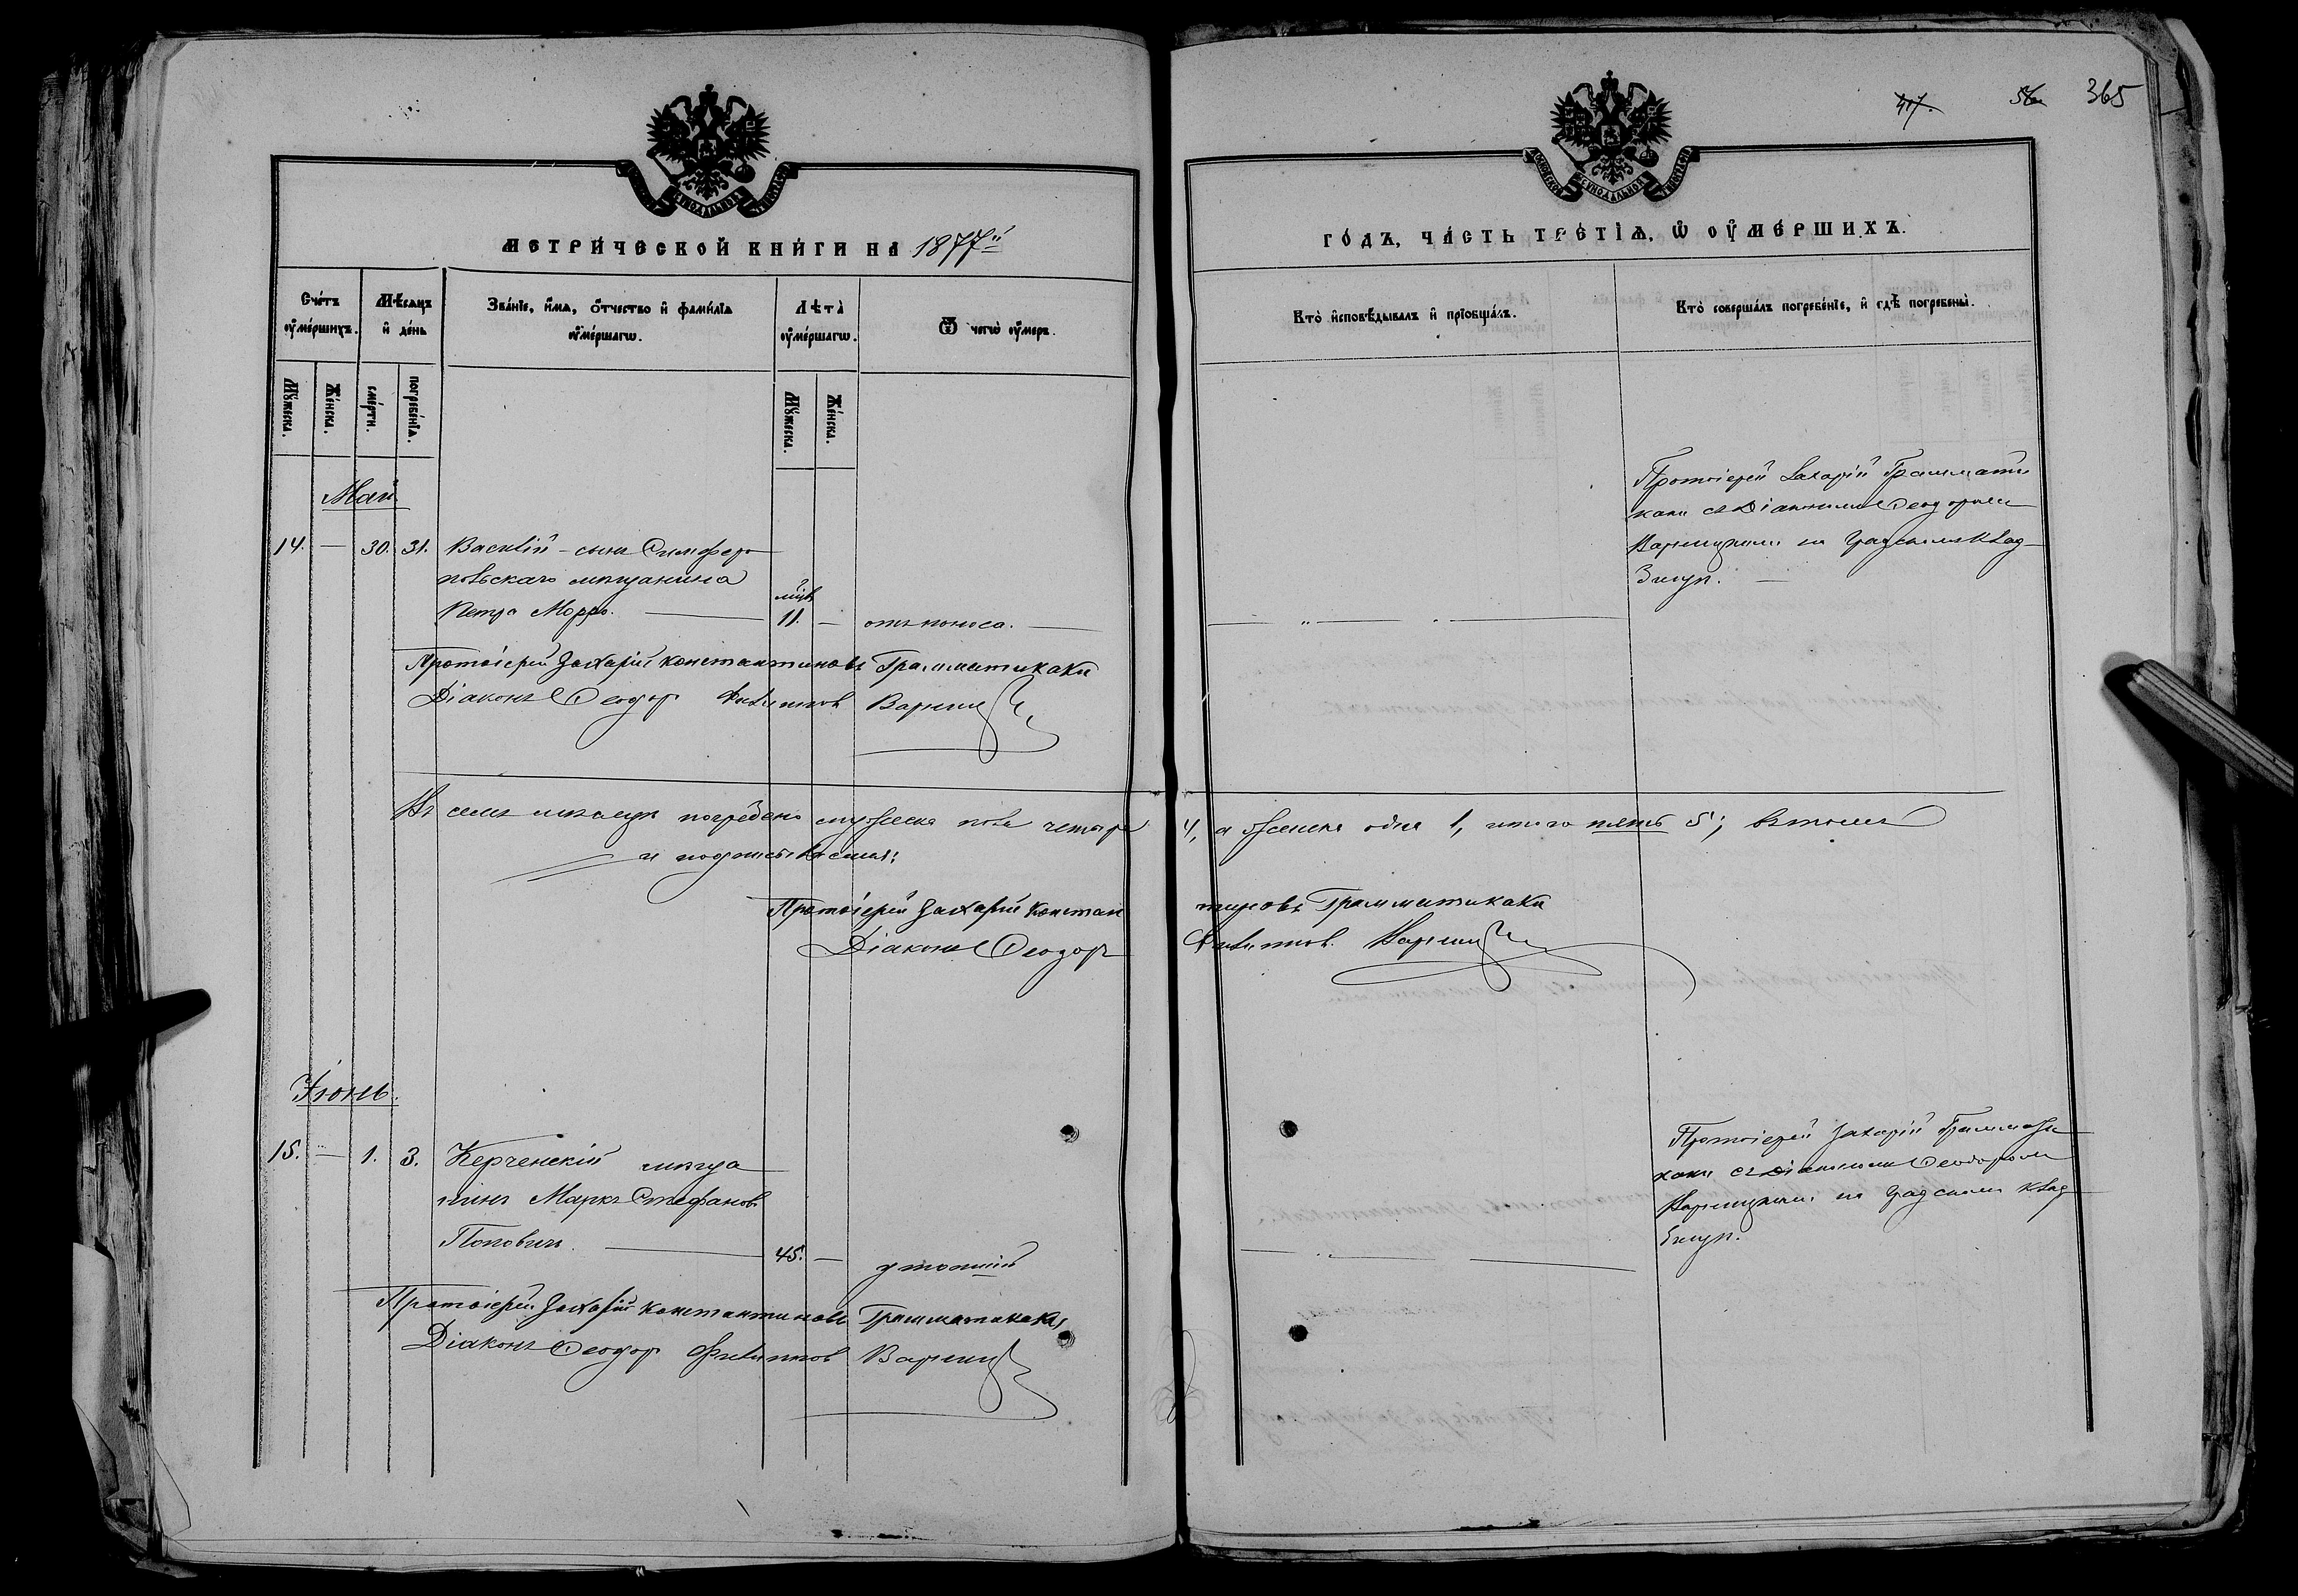 417. 365
МЕТРИ́ЧЕСКОЙ КНИ́ГИ НА 1877й
ГО́ДЪ, ЧА́СТЬ ТРЕ́ТІѦ, Ѡ ОУ҆МЕ́РШИХЪ.
Сче́тъ оу҆ме́ршихъ.
Мѣ́сѧцъ и҆ де́нь
Зва́нїе, и҆́мѧ, о҆́тчество и҆ фами́лїѧ оу҆ме́ршагѡ.
Лѣ́та̀ оу҆ме́ршагѡ.
Ѿ чегѡ̀ оу҆́меръ.
Кто̀ и҆сповѣ́дывалъ и҆ прїобща́лъ.
Кто̀ соверша́лъ погребе́нїе, и҆ гдѣ̀ погребены̀.
Мꙋ́жеска.
Же́нска.
сме́рти.
погребе́нїѧ.
Мꙋ́жеска.
Же́нска.
Май
14. — 30. 31. Василій - сынъ Симферо
польскаго мѣщанина
Петра Морро. мѣц. 11. — отъ поноса.
Протоіерей Захарій Граммати
каки съ Діакономъ Ѳеодоромъ
Варницкимъ на Градскомъ Клад
бищѣ.
Протоіерей Захарій Константиновъ Грамматикаки
Діаконъ Ѳеодоръ Филиппов Варниц
Въ семъ мѣсяцѣ погребено мужеска пола четыре 4, а женска одна 1, итого пять 5; въ томъ
и подписываемся:
Протоіерей Захарій Константиновъ Грамматикаки
Діаконъ Ѳеодоръ Филиппов. Варниц
Іюнь.
15. — 1. 3. Керченскій мѣща
нинъ Маркъ Стефановъ
Поповичъ. 45. — утопшій
Протоіерей Захарій Граммати
каки съ Діакономъ Ѳеодоромъ
Варницкимъ на Градскомъ Клад
бищѣ.
Протоіерей Захарій Константиновъ Грамматикаки
Діаконъ Ѳеодоръ Филиппов Варниц